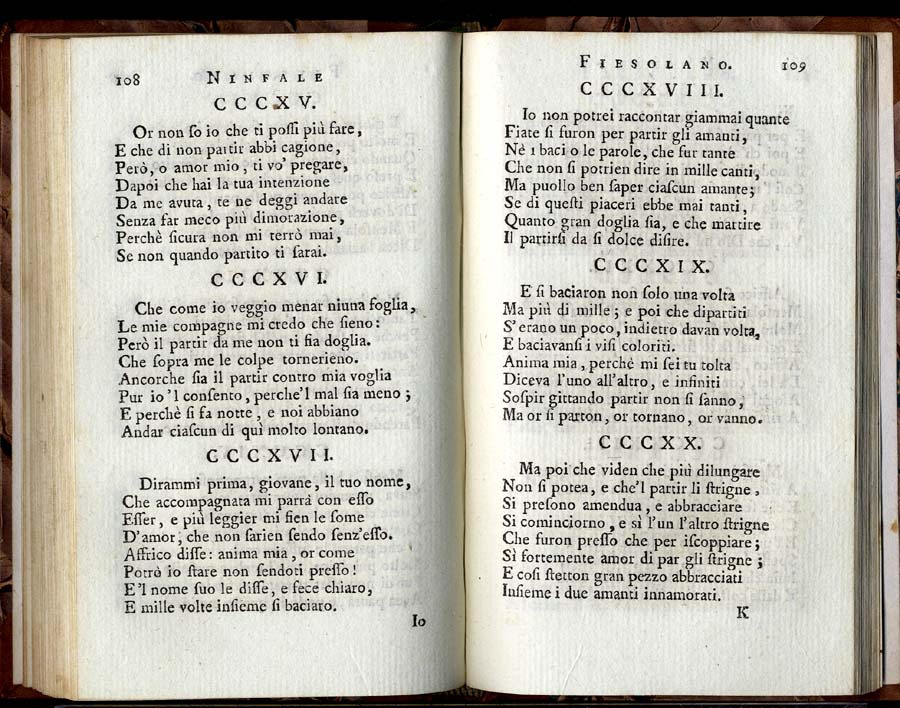 108 NINFALE
CCCXV.
Or non ſo io che ti poſſi più fare,
E che di non partir abbi cagione,
Però, o amor mio, ti vo' pregare,
Dapoi che hai la tua intenzione
Da me avuta, te ne deggi andare
Senza far meco più dimorazione,
Perchè ſicura non mi terrò mai,
Se non quando partito ti ſarai.
CCCXVI.
Che come io veggio menar niuna foglia,
Le mie compagne mi credo che ſieno:
Però il partir da me non ti ſia doglia.
Che ſopra me le colpe tornerieno.
Ancorche ſia il partir contro mia voglia
Pur io 'l conſento, perche'l mal ſia meno;
E perchè ſi fa notte, e noi abbiano
Andar ciaſcun di quì molto lontano.
CCCXVII.
Dirammi prima, giovane, il tuo nome,
Che accompagnata mi parrà con eſſo
Eſſer, e più leggier mi fien le ſome
D'amor, che non ſarien ſendo ſenz'eſſo.
Affrico diſſe: anima mia, or come
Potrò io ſtare non ſendoti preſſo!
E'l nome ſuo le diſſe, e fece chiaro,
E mille volte inſieme ſi baciaro.
Io
FIESOLANO. 109
CCCXVIII.
Io non potrei raccontar giammai quante
Fiate ſi furon per partir gli amanti,
Nè i baci o le parole, che fur tante
Che non ſi potrien dire in mille canti,
Ma puollo ben ſaper ciaſcun amante;
Se di queſti piaceri ebbe mai tanti,
Quanto gran doglia ſia, e che martire
Il partirſi da ſi dolce diſire.
CCCXIX.
E ſi baciaron non ſolo una volta
Ma più di mille; e poi che dipartiti
S'erano un poco, indietro davan volta,
E baciavanſi i viſi coloriti.
Anima mia, perchè mi ſei tu tolta
Diceva l'uno all'altro, e infiniti
Soſpir gittando partir non ſi ſanno,
Ma or ſi parton, or tornano, or vanno.
CCCXX.
Ma poi che viden che più dilungare
Non ſi potea, e che'l partir li ſtrigne,
Si preſono amendua, e abbracciare
Si cominciorno, e sì l'un l'altro ſtrigne
Che furon preſſo che per iſcoppiare;
Sì fortemente amor di par gli ſtrigne;
E coſì ſtetton gran pezzo abbracciati
Inſieme i due amanti innamorati.
K